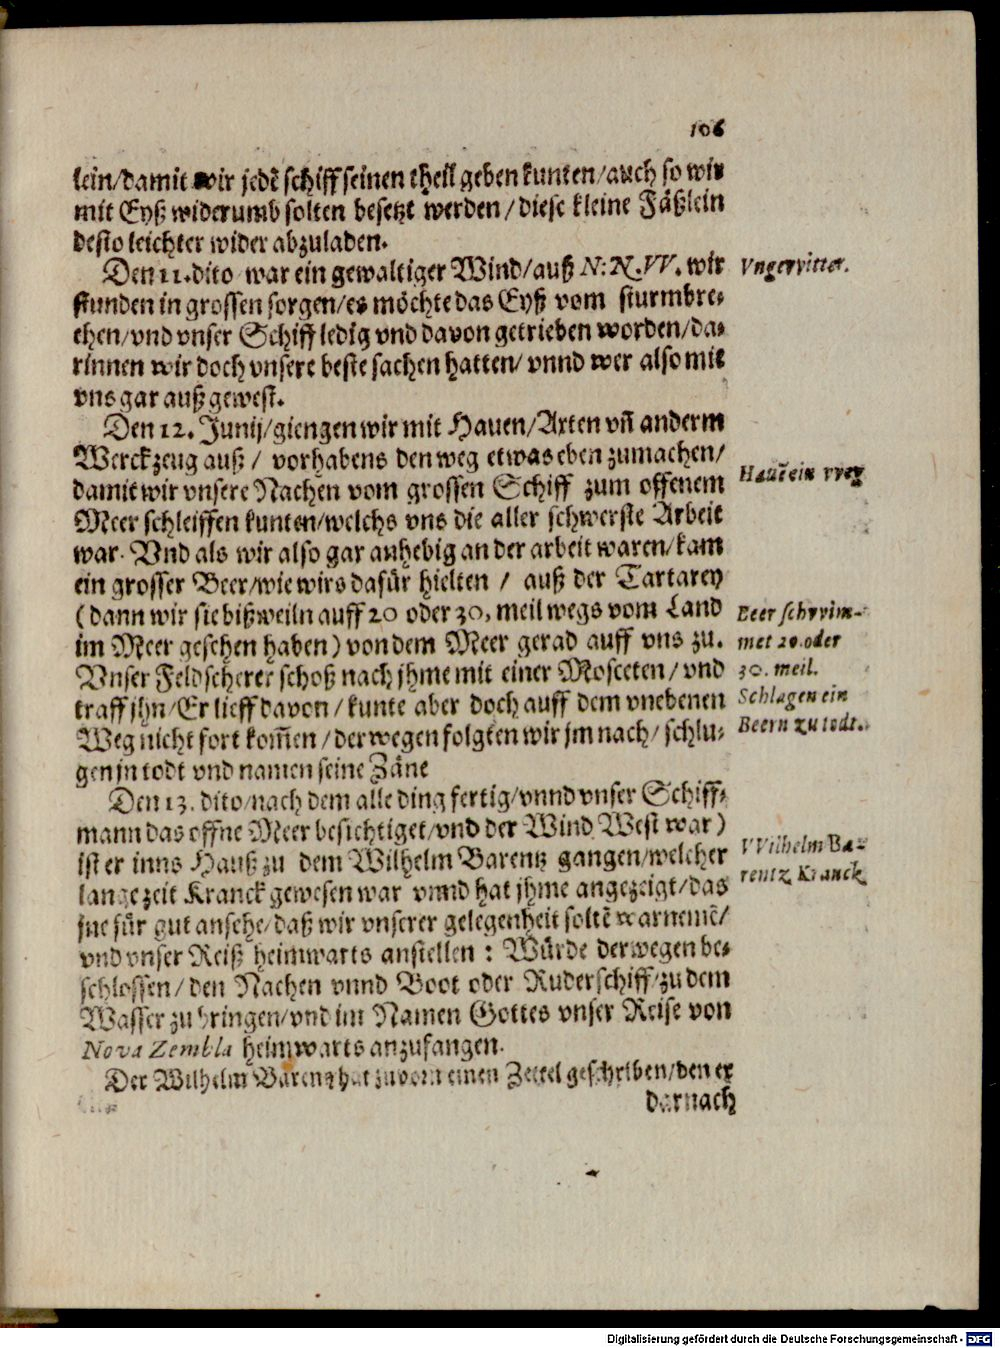 106
lein/damit wir jedẽ schiff seinen theil geben kunten/auch so wir
mit Eyß widerumb solten besetzt werden/diese kleine Fäßlein
desto leichter wider abzuladen.
Den 11. dito war ein gewaltiger Wind/auß N: N. VV. wir
stunden in grossen sorgen/es möchte das Eyß vom sturm bre-
chen/vnd vnser Schiff ledig vnd davon getrieben worden/da-
rinnen wir doch vnsere beste sachen hatten/vnnd wer also mit
vns gar auß gewest.
Vngevvitter.
Den 12. Junij/giengen wir mit Hauen/Axten vñ anderm
Werckzeug auß/vorhabens den weg etwas eben zumachen/
damit wir vnsere Nachen vom grossen Schiff zum offenem
Meer schleiffen kunten/welchs vns die aller schwerste Arbeit
war. Vnd als wir also gar anhebig an der arbeit waren/kam
ein grosser Beer/wie wirs dafür hielten / auß der Tartarey
(dann wir sie bißweiln auff 20 oder 30, meil wegs vom Land
im Meer gesehen haben) von dem Meer gerad auff vns zu.
Vnser Feldscherer schoß nach jhme mit einer Mosceten/vnd
traff jhn/Er lieff davon/kunte aber doch auff dem vnebenen
Weg nicht fort kom̃en/derwegen folgten wir jm nach/schlu-
gen jn todt vnd namen seine Zäne
Hauẽ ein vveg
Beer schvvim-
met 20. oder
30. meil.
Schlagen ein
Beern zu todt.
Den 13. dito/nach dem alle ding fertig/vnnd vnser Schiff-
mann das offne Meer besichtiget/vnd der Wind West war)
ist er inns Hauß zu dem Wilhelm Barentz gangen/welcher
lange zeit Kranck gewesen war vnnd hat jhme angezeigt/das
jne für gut ansehe/daß wir vnserer gelegenheit soltẽ warnemẽ/
vnd vnser Reiß heimwarts anstellen : Würde derwegen be-
schlossen/den Nachen vnnd Boot oder Ruderschiff/zu dem
Wasser zu bringen/vnd im Namen Gottes vnser Reise von
Nova Zembla heimwarts anzufangen.
VVilhelm Ba-
rentz Kranck
Der Wilhelm Barentz hat zuvorn einen Zettel geschriben/den er
darnach
Digitalisierung gefördert durch die Deutsche Forschungsgemeinschaft - DFG